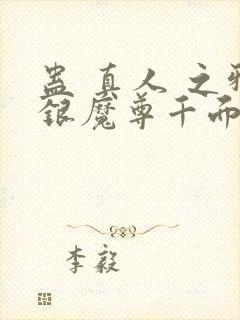 蛊真人之邪
银魔尊千而
李毅